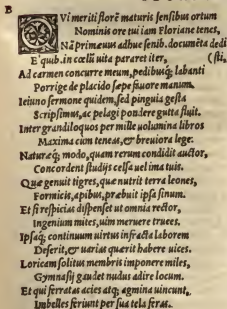 B
QVi meriti florē maturis sensibus ortum
Nominis ore tui iam Floriane tenes,
Nā primæuus adhuc senib. documēta dedisti,
E quib. in cœlū uita pararet iter,
Ad carmen concurre meum, pedibusq; labanti
Porrige de placido sæpe fauore manum.
Ieiuno sermone quidem, sed pinguia gesta
Scripsimus, ac pelagi pondere gutta fluit.
Inter grandiloquos per mille uolumina libros
Maxima cum teneas, & breuiora lege.
Naturæq; modo, quam rerum condidit auctor,
Concordent studijs celsa uel ima tuis.
Quæ genuit tigres, quæ nutrit terra leones,
Formicis, apibus, præbuit ipsa sinum.
Et si respicias dispenset ut omnia rector,
Ingenium mites, uim meruere truces.
Ipsaq; continuum uirtus infracta laborem
Deserit, & uarias quærit habere uices.
Loricam solitus membris imponere miles,
Gymnasij gaudet nudus adire locum.
Et qui ferratas acies atq; agmina uincunt,
Imbelles feriunt per sua tela feras.